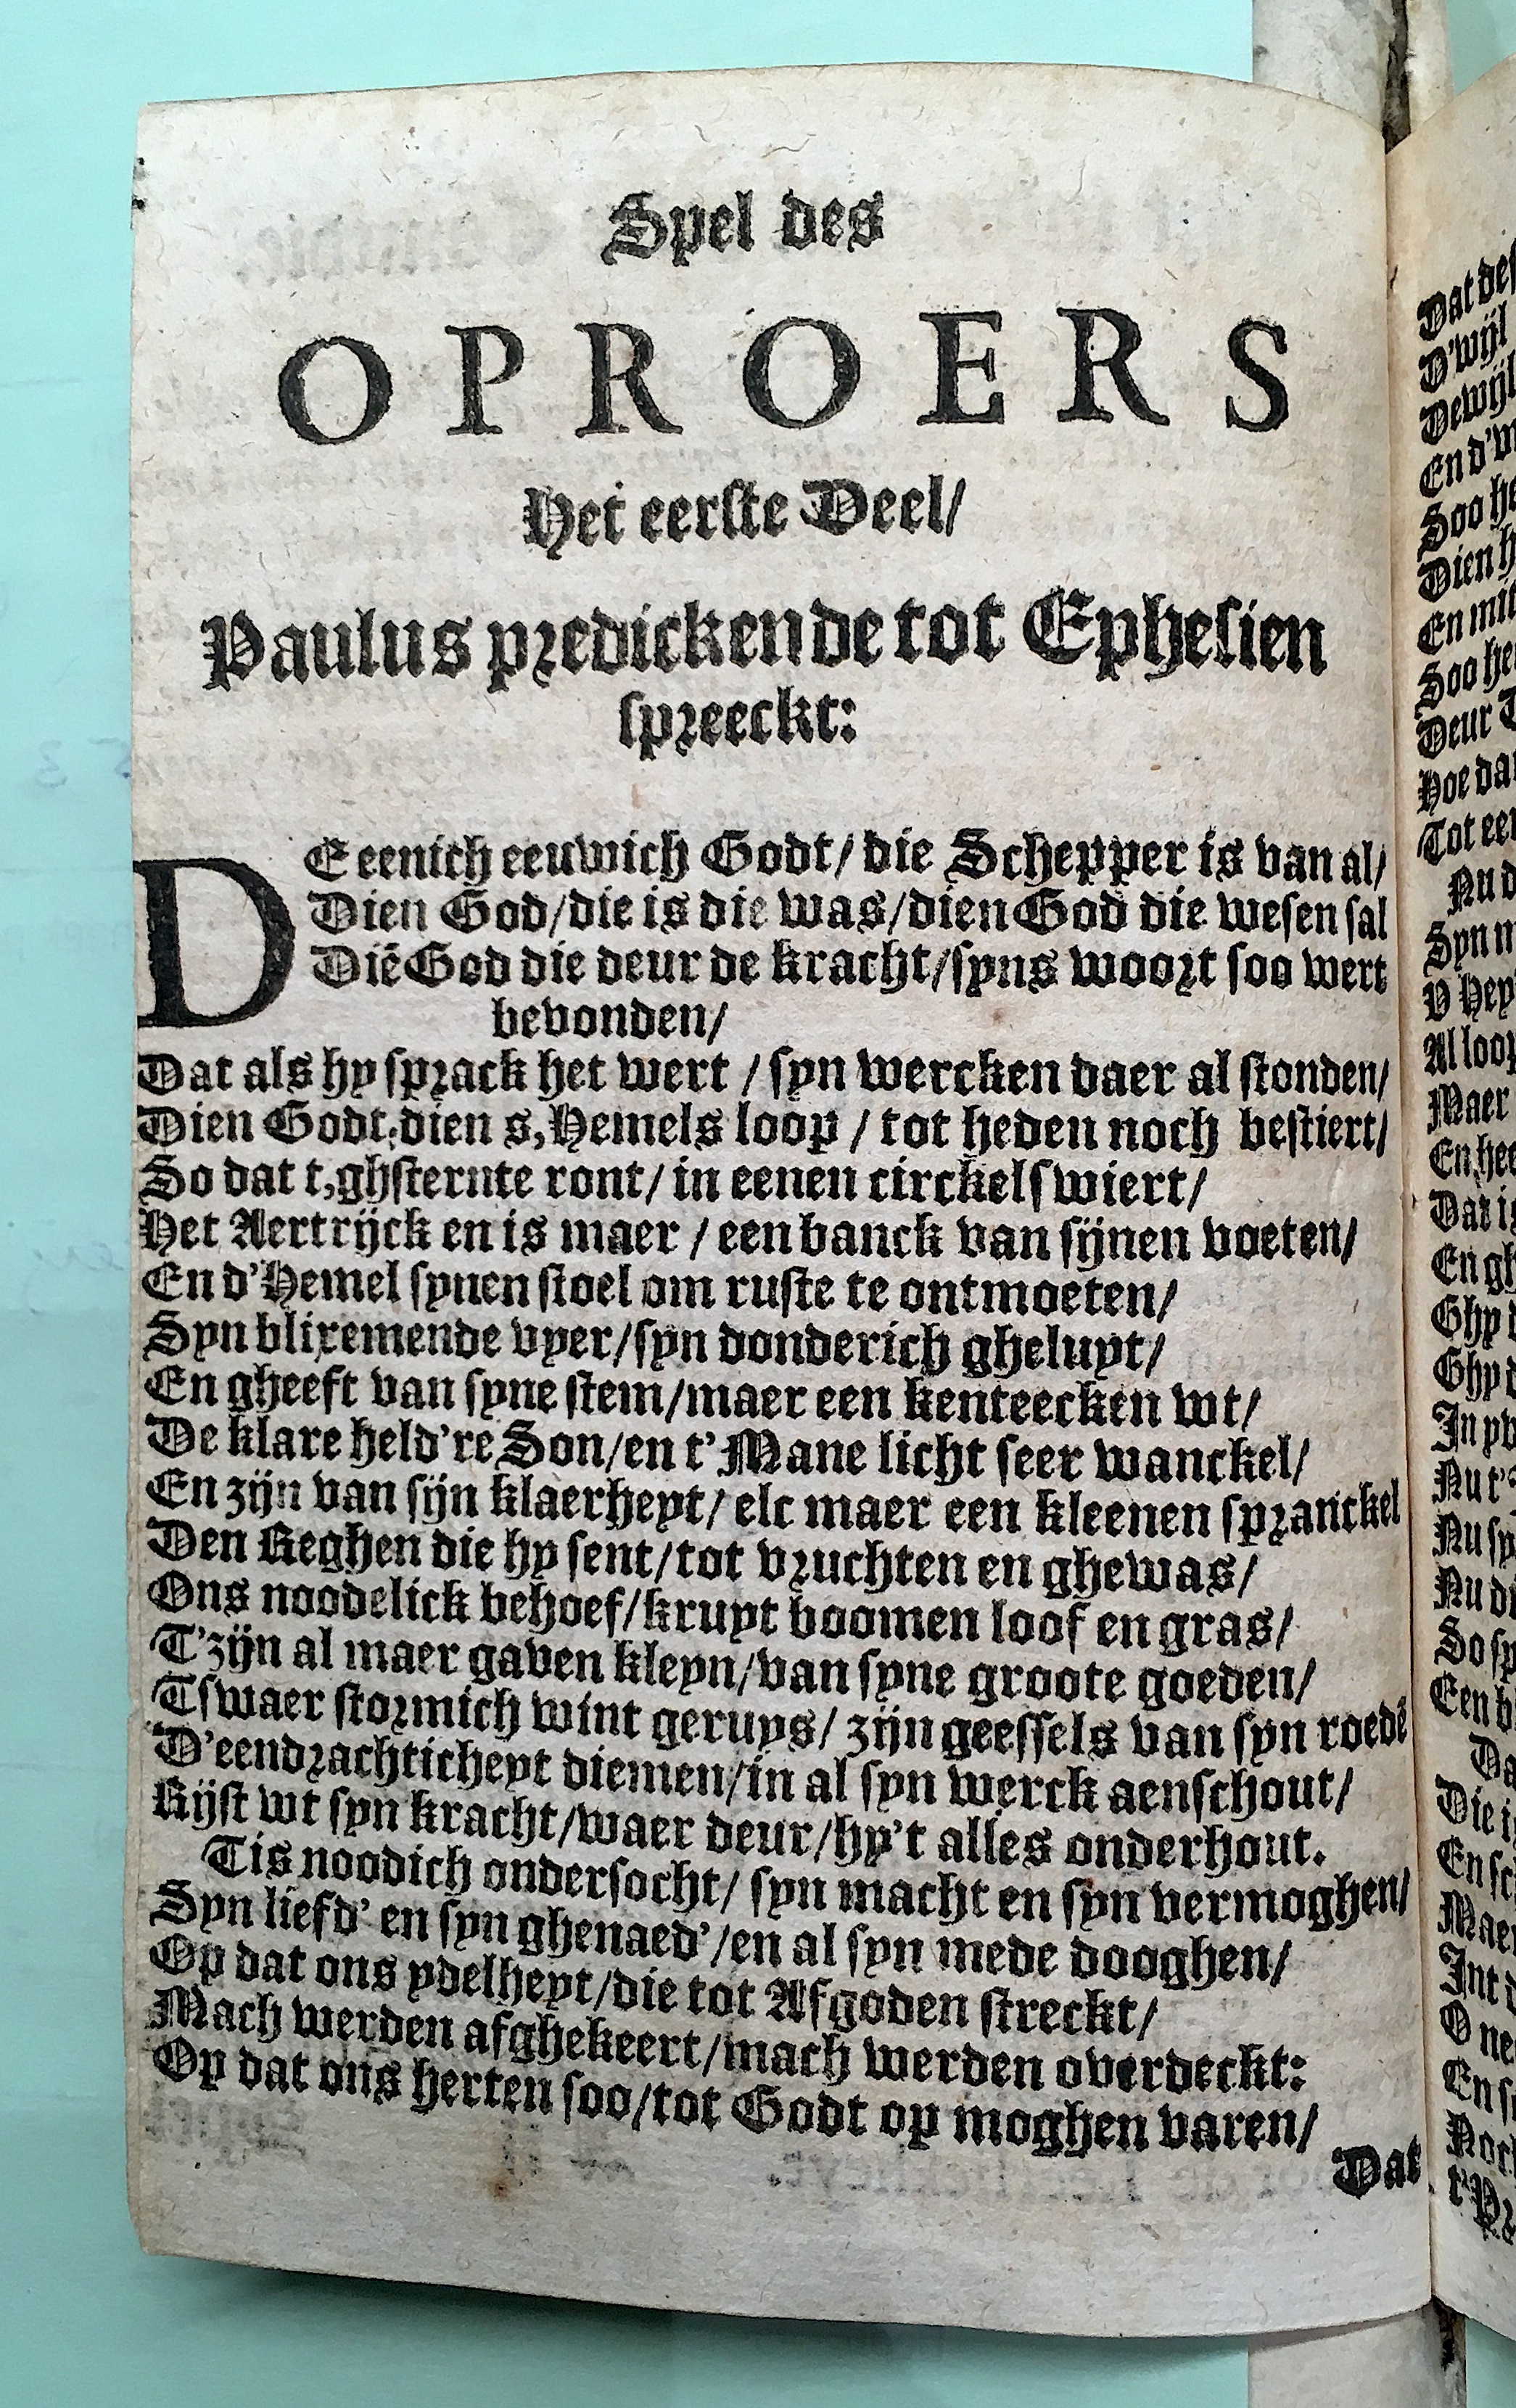 Spel des
OPROERS
Het eerste Deel/
Paulus predickende tot Ephesien
spreeckt:
DE eenich eeuwich Godt/ die Schepper is van al/
Dien God/die is die was/dien God die wesen sal
Diē God die deur de kracht/syns woort soo wert
bevonden/
Dat als hy sprack het wert / syn wercken daer al stonden/
Dien Godt,dien s,Hemels loop / tot heden noch bestiert/
So dat t,ghsternte ront/ in eenen circkel swiert/
Het Aertrijck en is maer / een banck van sijnen voeten/
En d'Hemel synen stoel om ruste te ontmoeten/
Syn blixemende vyer/syn donderich gheluyt/
En gheeft van syne stem/maer een kenteecken wt/
De klare held're Son/en t'Mane licht seer wanckel/
En zijn van sijn klaerheyt/ elc maer een kleenen spranckel
Den Reghen die hy sent/tot vruchten en ghewas/
Ons noodelick behoef/kruyt boomen loof en gras/
T'zijn al maer gaven kleyn/van syne groote goeden/
Tswaer stormich wint geruys/ zijn geessels van syn roedē
D'eendrachticheyt diemen/in al syn werck aenschout/
Rijst wt syn kracht/waer deur/hy't alles onderhout.
Tis noodich ondersocht/ syn macht en syn vermoghen/
Syn liefd' en syn ghenaed'/en al syn mede dooghen/
Op dat ons ydelheyt/die tot Afgoden streckt/
Mach werden afghekeert/mach werden overdeckt:
Op dat ons herten soo/tot Godt op moghen varen/
Dat